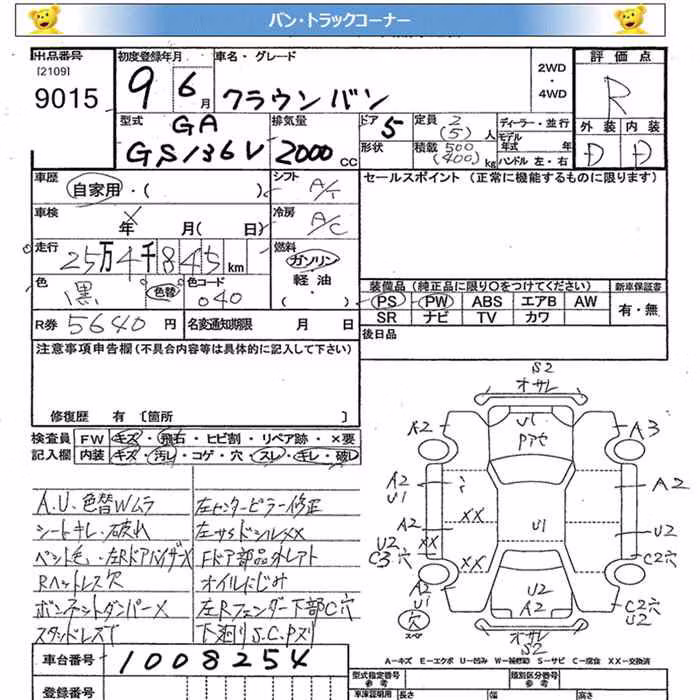 バン・トラックコーナー
出品番号 初度登録年月 車名・グレード 評価点
[2109]
9015
9 6月 クラウンバン 2WD・4WD R
型式 GA 排気量 ドア 5 定員 2(5)人 ディーラー・並行 外装 内装
GS136V 2000cc 形状 積載 500(400)kg モデル年式 年 D D
ハンドル 左・右
車歴 シフト セールスポイント (正常に機能するものに限ります)
自家用・( ) A/T
車検 × 年 月( 日) 冷房 A/C
走行 25万4千845km 燃料 ガソリン・軽油・( )
色 黒 色替 色コード 040 装備品 (純正品に限り○をつけてください) 新車保証書
PS PW ABS エアB AW 有・無
SR ナビ TV カワ
R券 5640円 名変通知期限 月 日 後日品
注意事項申告欄(不具合内容等は具体的に記入して下さい)
修復歴 有 [箇所 ]
検査員 FW キズ・飛石・ヒビ割・リペア跡・×要
記入欄 内装 キズ・汚レ・コゲ・穴・スレ・キレ・破レ
A.U.色替Wムラ 左センターピラー修正
シートキレ・破れ 左サドシルXX
ペント色・左RドアバイザーX Fドア部品外レアト
Rヘットレス穴 オイルにじみ
ボンネットダンパーX 左Rフェンダー下部C穴
スタッドレスT 下廻りS.C.Pズリ
S2
オサレ
A2 U1 Pアセ A3
A2 U1 A2
XX
A2 U1
U2 XX U2
C3穴 XX C2穴
A2 U1 U2 A2 C2穴 U2
穴 スペア オサレ
S2
A-キズ E-エクボ U-凹み W-補修跡 S-サビ C-腐食 XX-交換済
車台番号 1008254
登録番号
型式指定番号 参考 類別区分番号 参考
車検証明用 長さ 幅 高さ